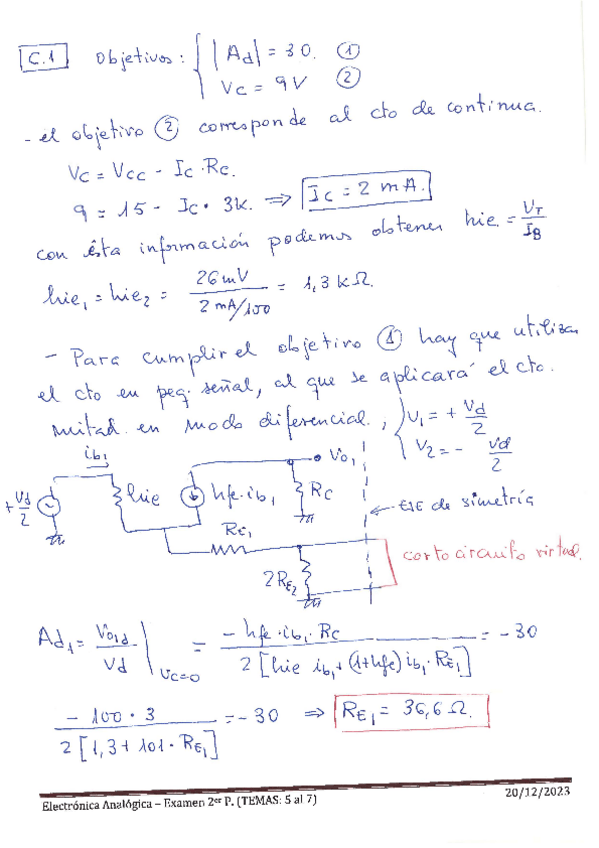 C.1 Objetivos: { |Ad| = 30. ①
Vc = 9V ②
- el objetivo ② corresponde al cto de continua.
Vc = Vcc - Ic·Rc.
9 = 15 - Ic· 3k. ⇒ Ic = 2 mA.
con ésta información podemos obtener hie. = VT/IB
hie1 = hie2 = 26mV / 2mA/100 = 1,3 kΩ.
- Para cumplir el objetivo ① hay que utilizar
el cto en peq. señal, al que se aplicará el cto.
mitad en modo diferencial, { V1 = + Vd/2
V2 = - Vd/2
ib1
Vo1
+ Vd/2
hie
hfe·ib1
Rc
EJE de simetría
RE1
cortocircuito virtual.
2RE2
Ad1 = Vo1d/Vd | Vc=0 = - hfe·ib1·Rc / 2[hie ib1 + (1+hfe) ib1·RE1] = - 30
- 100 · 3 / 2[1,3 + 101·RE1] = - 30 ⇒ RE1 = 36,6 Ω.
Electrónica Analógica – Examen 2er P. (TEMAS: 5 al 7)
20/12/2023